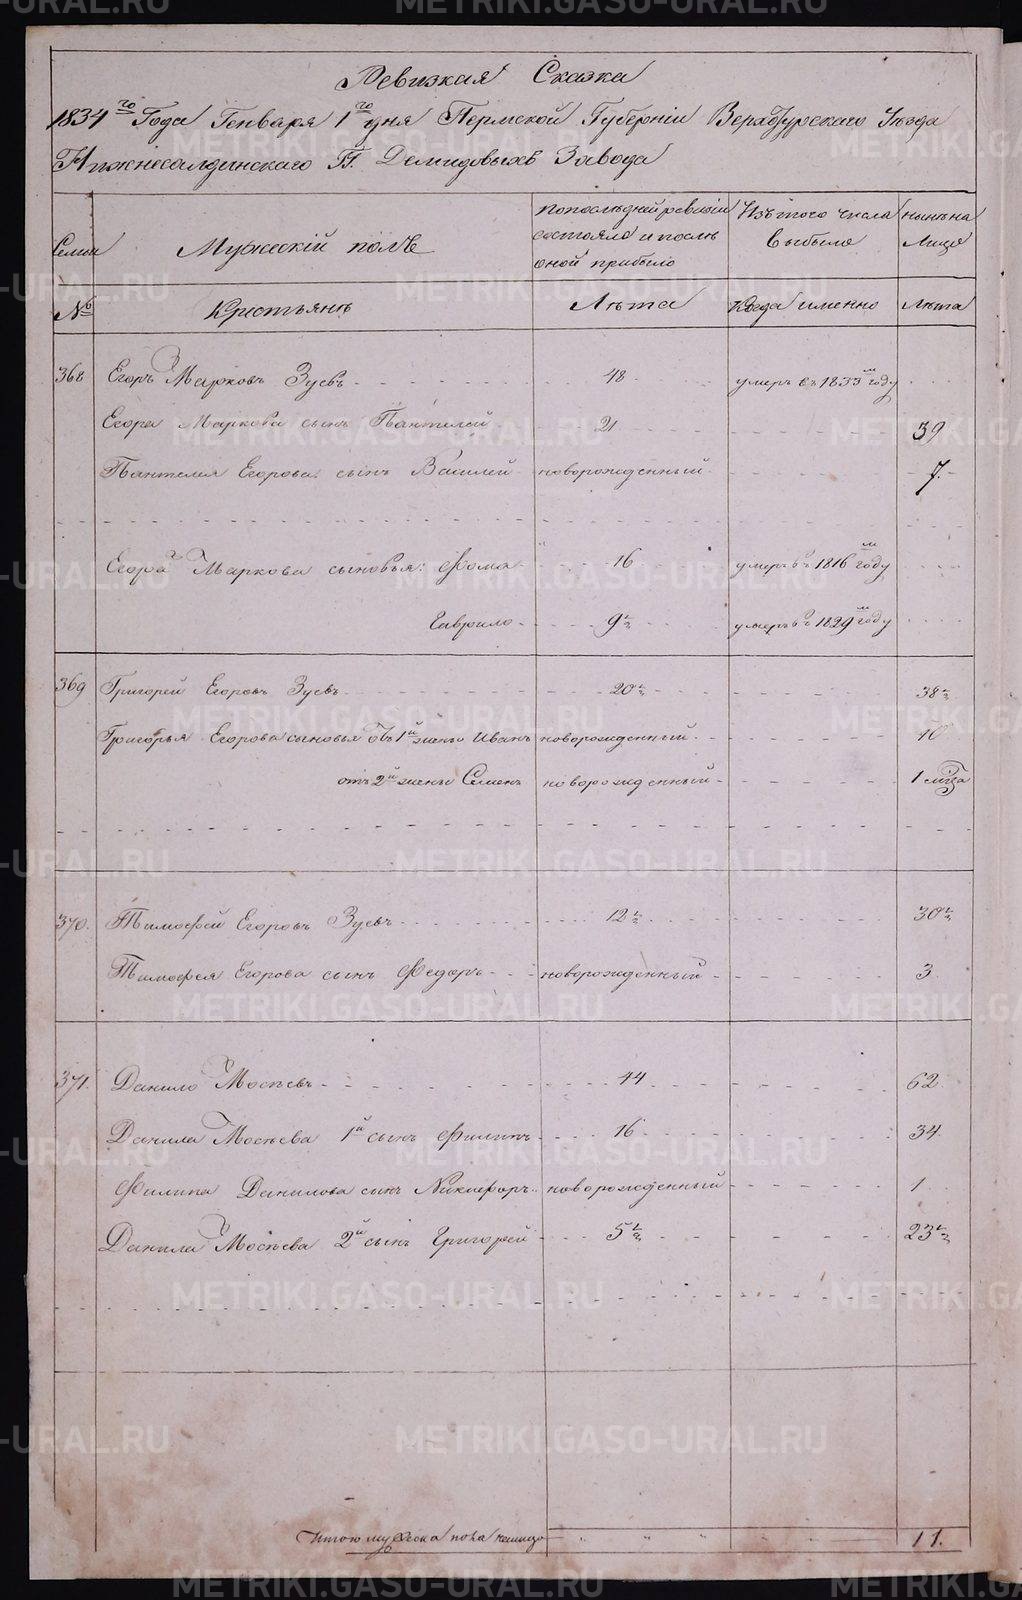 Ревизкая Сказка
1834го Года Генваря 1го дня Пермской Губернiи Верхотурскаго Уѣзда
Нижнесалдинскаго Г. Г. Демидовыхъ Завода
Семьи Мужескiй полъ По последней ревизiи состояло и послѣ оной прибыло Изъ того числа выбыло нынѣ на лицо
№ Крестьянъ Лѣта Когда именно Лѣта
368 Егоръ Марковъ Зуевъ 48 умеръ въ 1833м году
Егора Маркова сынъ Пантелей 21 39
Пантелея Егорова сынъ Василей новорожденный 7
Егора Маркова сыновья: Фома 16 умеръ въ 1816м году
Гаврило 9½ умеръ въ 1829м году
369 Григорей Егоровъ Зуевъ 20½ 38½
Григорья Егорова сыновья отъ 1й жены Иванъ новорожденный 10
отъ 2й жены Семенъ новорожденный 1 м[ца]
370. Тимофей Егоровъ Зуевъ 12½ 30½
Тимофея Егорова сынъ Федоръ новорожденный 3
371. Данило Мосѣевъ 44 62
Данила Мосѣева 1й сынъ Филипъ 16 34
Филипа Данилова сынъ Никифоръ новорожденный 1
Данила Мосѣева 2й сынъ Григорей 5½ 23½
Итого мужеска пола налицо 11.
METRIKI.GASO-URAL.RU